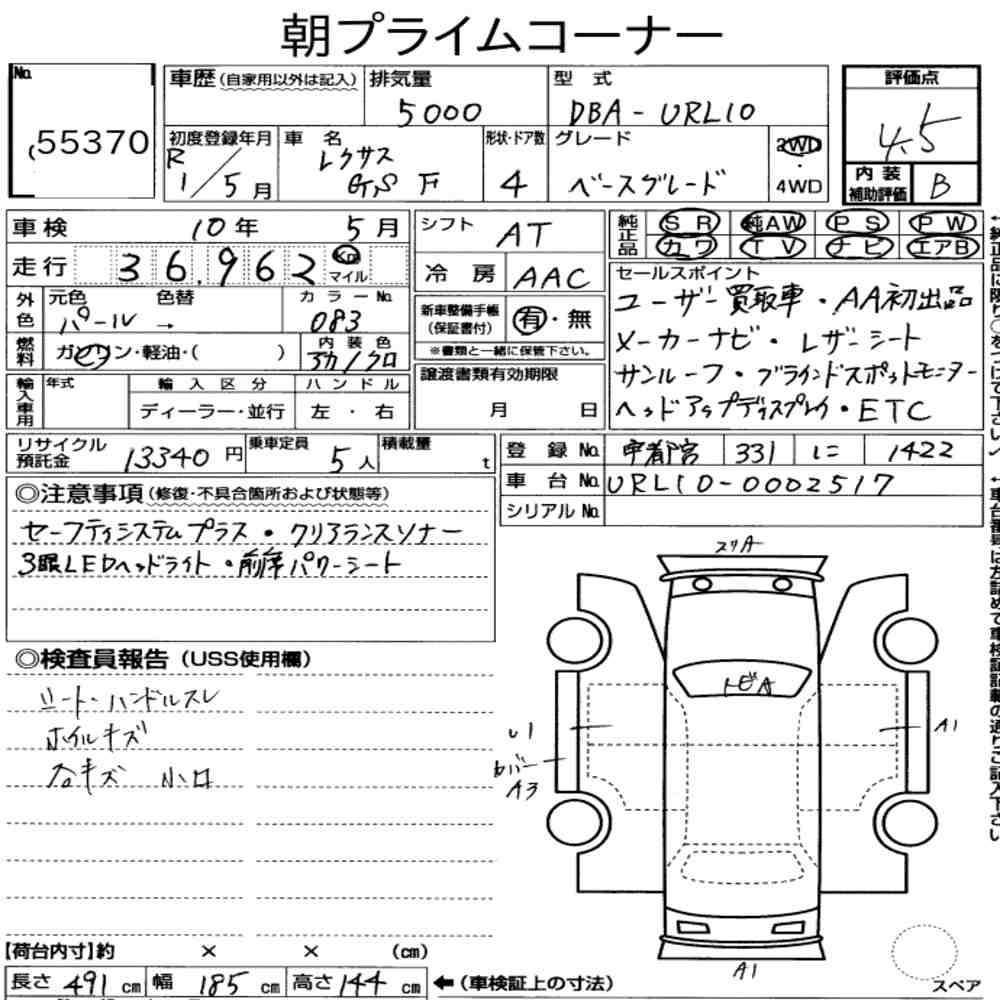 朝プライムコーナー
No. 55370
車歴(自家用以外は記入) 排気量 5000 型式 DBA-URL10 評価点 4.5
初度登録年月 R1/5月 車名 レクサス GS F 形状・ドア数 4 グレード ベースグレード 2WD・4WD 内装補助評価 B
車検 10年 5月 シフト AT 純正品 SR 純AW PS PW
カワ TV ナビ エアB
走行 36,962 Km マイル 冷房 AAC セールスポイント
外色 元色 パール → 色替 カラーNo. 083 新車整備手帳(保証書付) 有・無 ユーザー買取車・AA初出品
※書類と一緒に保管下さい。
燃料 ガソリン・軽油・( ) 内装色 アカ/クロ メーカーナビ・レザーシート
輸入車用 年式 輸入区分 ハンドル 譲渡書類有効期限 サンルーフ・ブラインドスポットモニター
ディーラー・並行 左・右 月 日 ヘッドアップディスプレイ・ETC
リサイクル預託金 13340円 乗車定員 5人 積載量 t 登録No. 宇都宮 331 に 1422
車台No. URL10-0002517
シリアルNo.
◎注意事項(修復・不具合箇所および状態等)
セーフティシステムプラス・クリアランスソナー
3眼LEDヘッドライト・前席パワーシート
◎検査員報告(USS使用欄)
シート・ハンドルスレ
ホイルキズ
各キズ 小口
スリA
トビA
U1
カバーA3
A1
A1
スペア
【荷台内寸】約 × × (cm)
長さ 491 cm 幅 185 cm 高さ 144 cm ←(車検証上の寸法)